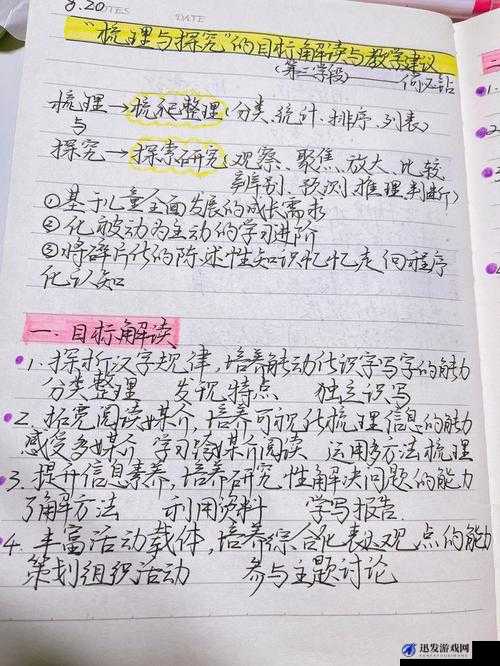 8.20 NOTES DATE
“梳理与探究”的目标解读与教学建议
(第三学段)
梳理→梳理整理(分类、统计、排序、列表)
与
探究→探索研究(观察、聚焦、放大、比较
辨别、预测、推理判断)
①基于儿童全面发展的成长需求
②化被动为主动的学习进阶
③将碎片化的陈述性知识记忆走向程序
化认知
一.目标解读
1.探析汉字规律,培养能动化识字写字的能力
分类整理 发现特点 独立识写
2.拓宽阅读媒介,培养可视化梳理信息的能力
感受多媒介 学习跨媒介阅读 运用多方法梳理
3.提升信息素养,培养研究性解决问题的能力
了解方法 利用资料 学写报告.
4.丰富活动载体,培养综合化表达观点的能力
策划组织活动 参与主题讨论
迅发游戏网